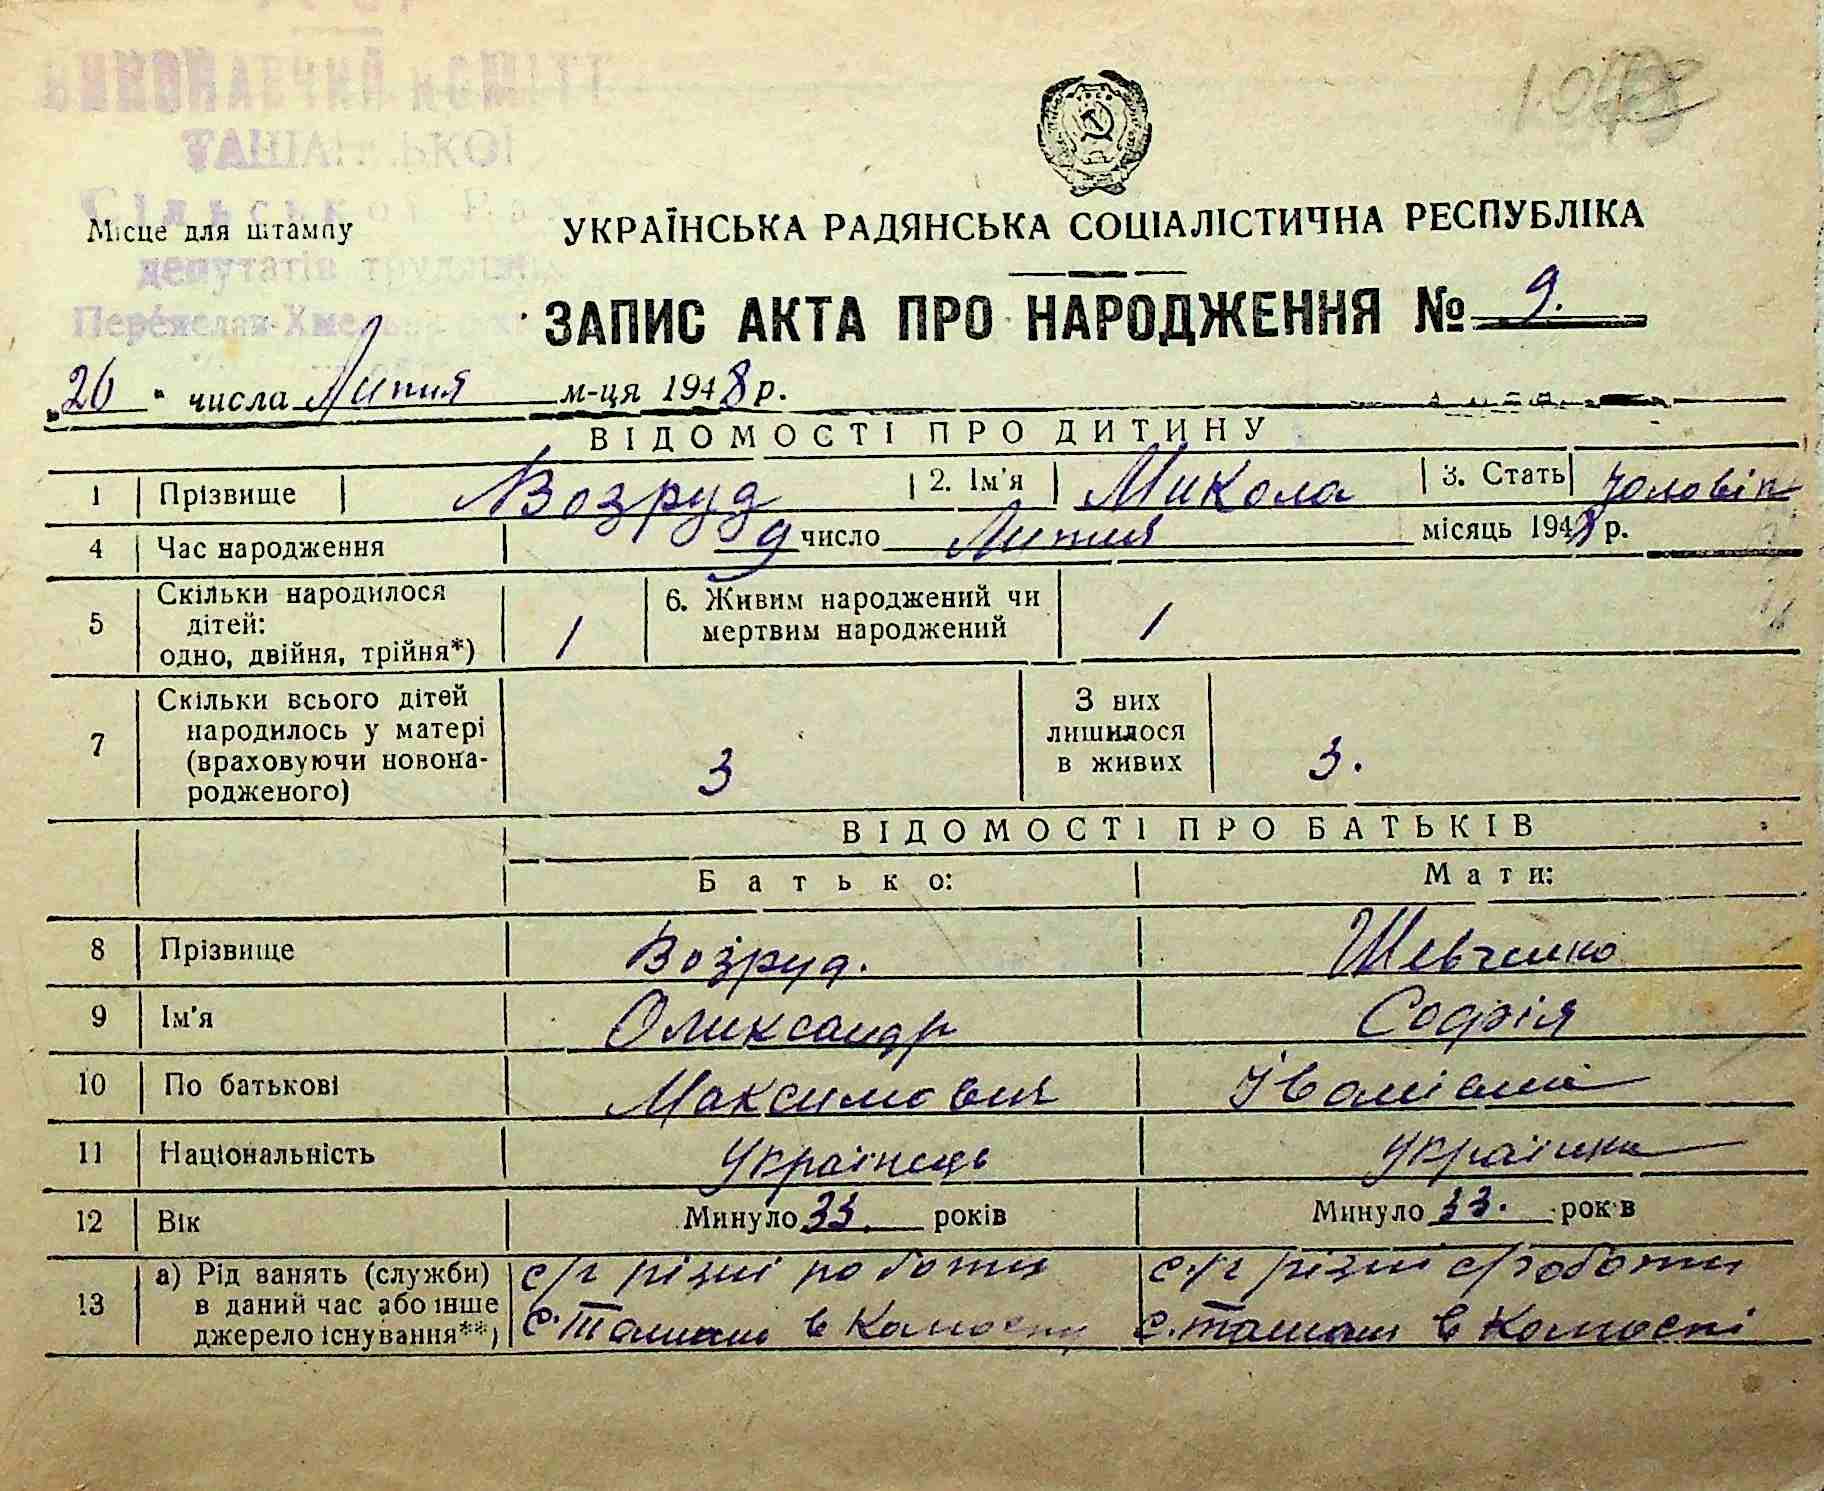 ВИКОНАВЧИЙ КОМІТЕТ
ТАШАНСЬКОЇ
Сільської Ради
депутатів трудящих
Переяслав-Хмельницьк
Місце для штампу
УКРАЇНСЬКА РАДЯНСЬКА СОЦІАЛІСТИЧНА РЕСПУБЛІКА
ЗАПИС АКТА ПРО НАРОДЖЕННЯ № 9.
„26" числа Липня м-ця 1948 р.
ВІДОМОСТІ ПРО ДИТИНУ
1 Прізвище Возруд 2. Ім'я Микола 3. Стать чоловіч
4 Час народження 9 число Липня місяць 1948 р.
5 Скільки народилося дітей: одно, двійня, трійня*) 1 6. Живим народжений чи мертвим народжений 1
7 Скільки всього дітей народилось у матері (враховуючи новонародженого) 3 З них лишилося в живих 3.
ВІДОМОСТІ ПРО БАТЬКІВ
Батько: Мати:
8 Прізвище Возруд. Шевченко
9 Ім'я Олександр Софія
10 По батькові Максимович Іванівна
11 Національність Українець Українка
12 Вік Минуло 33. років Минуло 33. років
13 а) Рід занять (служби) в даний час або інше джерело існування**) с/г різні роботи с. Ташань в Колгоспі с/г різні роботи с. Ташань в Колгоспі